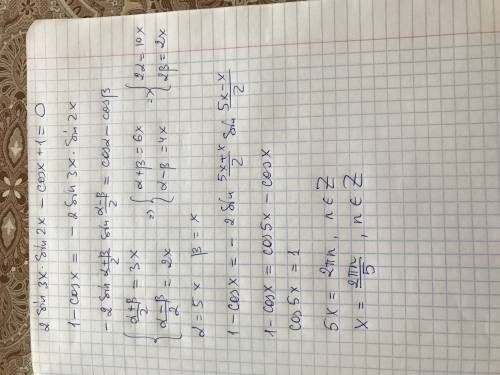 2 sin 3x sin 2x - cos x + 1 = 0
1 - cos x = - 2 sin 3x · sin 2x
- 2 sin (α+β)/2 sin (α-β)/2 = cos α - cos β
{ (α+β)/2 = 3x => { α+β = 6x => { 2α = 10x
{ (α-β)/2 = 2x { α-β = 4x { 2β = 2x
α = 5x β = x
1 - cos x = - 2 sin (5x+x)/2 sin (5x-x)/2
1 - cos x = cos 5x - cos x
cos 5x = 1
5x = 2πn, n ∈ Z
x = 2πn/5, n ∈ Z